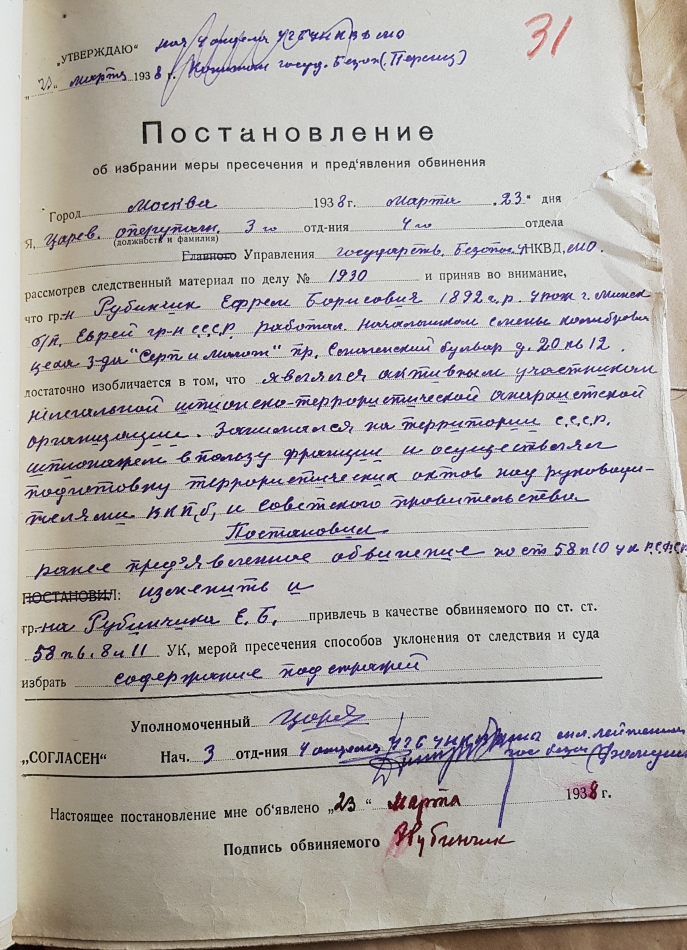 31
„УТВЕРЖДАЮ“ нач 4 отдела УГБ УНКВД МО
„23“ марта 1938 г. Капитан госуд. Безоп.
Постановление
об избрании меры пресечения и пред'явления обвинения
Город Москва 1938 г. Марта „23“ дня
Я, Царев. оперуполн. 3го отд-ния 4го отдела
(должность и фамилия)
Главного Управления государств. Безопас. УНКВД, МО.
рассмотрев следственный материал по делу № 1930 и приняв во внимание,
что гр-н Рубинчик Ефрем Борисович 1892 г.р. урож г. Минск
б/п. Еврей гр-н СССР. работал. начальником смены калибровоч
цеха з-да "Серп и Молот" пр. Смоленский бульвар д. 20 кв 12.
достаточно изобличается в том, что являлся активным участником
нелегальной шпионско-террористической анархистской
организации. Занимался на территории С.С.С.Р.
шпионажем в пользу франции и осуществлял
подготовку террористических актов над руководи-
телями ВКП/б, и Советского правительства
Постановил
ранее пред'явленное обвинение по ст 58 п 10 ук Р.С.Ф.С.Р
ПОСТАНОВИЛ: изменить и
гр-на Рубинчика Е. Б. привлечь в качестве обвиняемого по ст. ст.
58 п 6. 8 и 11 УК, мерой пресечения способов уклонения от следствия и суда
избрать содержание под стражей
Уполномоченный Царев
„СОГЛАСЕН“ Нач. 3 отд-ния 4 отдела УГБ УНКВД мл. лейтенант
гос безоп
Настоящее постановление мне об'явлено „23“ Марта 1938 г.
Подпись обвиняемого Рубинчик